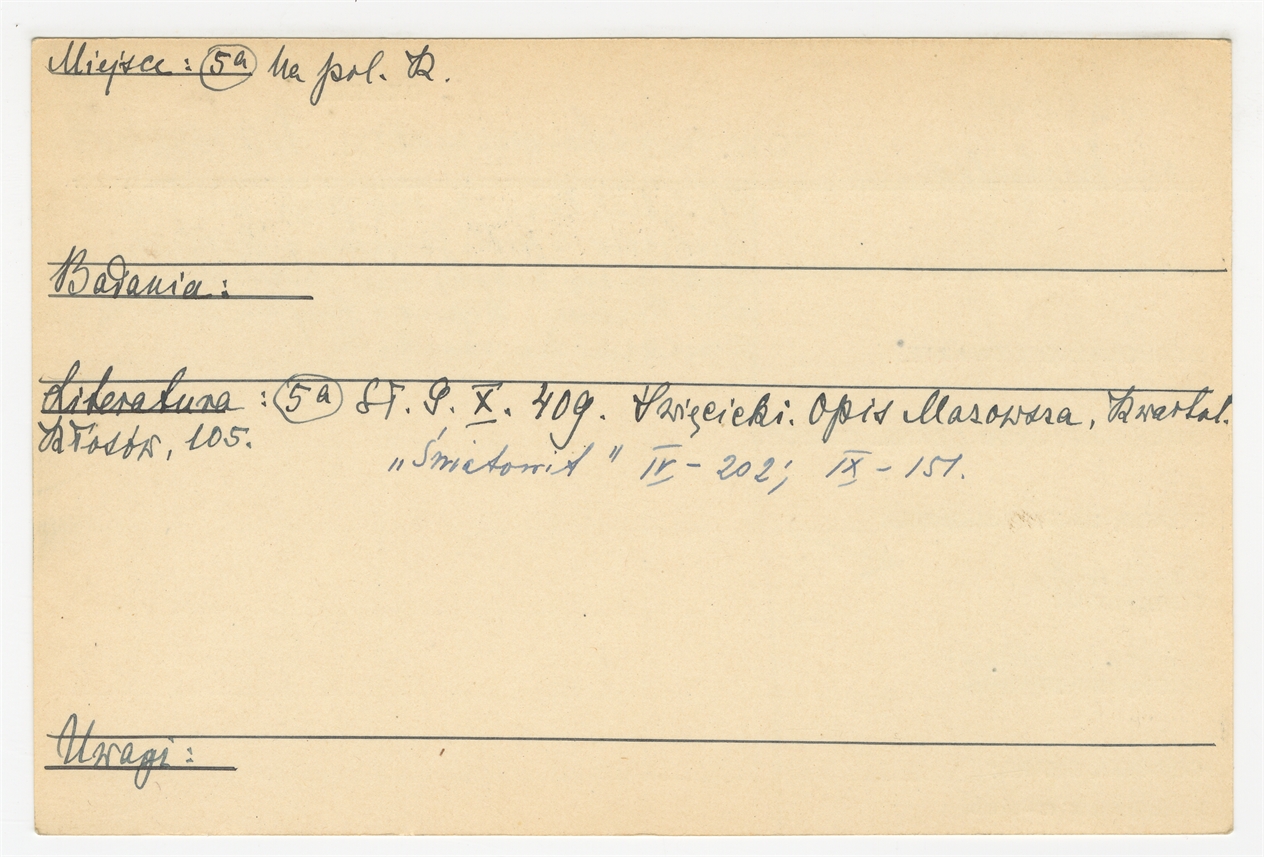 Miejsce: 5a Na pol. R.
Badania:
Literatura: 5a Sł. G. X. 409. Święcicki. Opis Mazowsza, Kwartal.
Kłosów, 105.
„Światowit" IV - 202; IX - 151.
Uwagi: